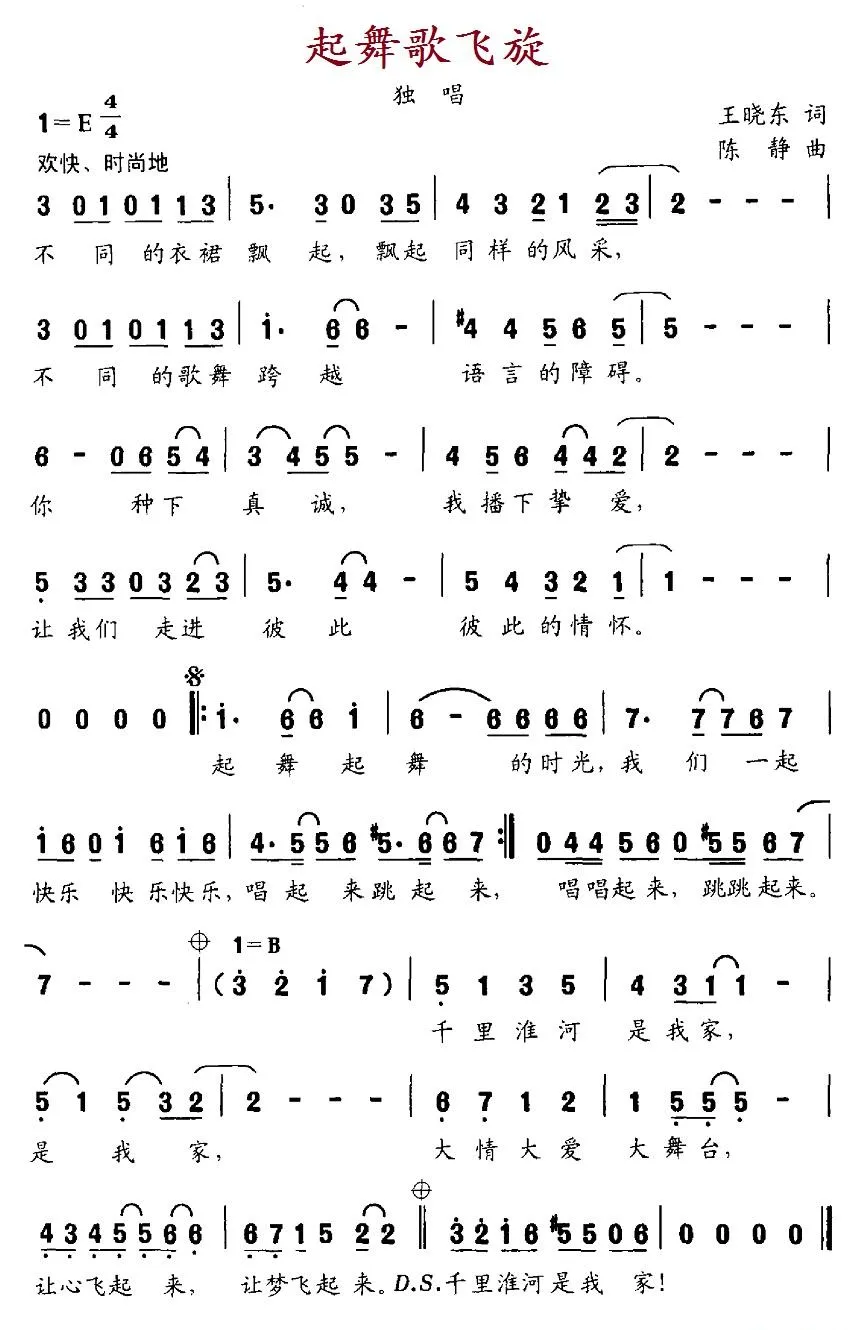 起舞歌飞旋
独 唱
1=E 4/4
王晓东 词
欢快、时尚地
陈 静 曲
3 01 01 11 3 | 5· 30 35 | 4 3 2 1 23 | 2 - - - |
不 同 的衣裙 飘 起，飘起 同样 的风采，
3 01 01 11 3 | i· 6 6 - | #4 4 5 6 5 | 5 - - - |
不 同 的歌舞 跨 越 语言的障碍。
6 - 06 54 | 3 4 5 5 - | 4 5 6 4 4 2 | 2 - - - |
你 种下 真 诚， 我播下挚 爱，
5 33 03 23 | 5· 4 4 - | 5 4 3 2 1 | 1 - - - |
让我们 走进 彼 此 彼此的情 怀。
0 0 0 0 |: i· 6 6 i | 6 - 66 66 | 7· 7 7 6 7 |
起 舞 起 舞 的时光，我 们 一起
i 6 0 i 6 i 6 | 4· 5 5 6 #5· 6 6 7 :| 0 4 4 5 6 0 #5 5 6 7 |
快乐 快乐快乐，唱起 来跳起 来， 唱唱起来，跳跳起来。
7 - - - | 1=B (3 2 i 7) | 5 1 3 5 | 4 3 1 1 - |
千里淮河 是我家，
5 1 5 3 2 | 2 - - - | 6 7 1 2 | 1 5 5 5 - |
是 我 家， 大情大爱 大舞台，
4 3 4 5 5 6 6 | 6 7 1 5 2 2 || 3 2 i 6 #5 5 0 6 | 0 0 0 0 ||
让心飞起 来， 让梦飞起来。D.S.千里淮河是我 家！